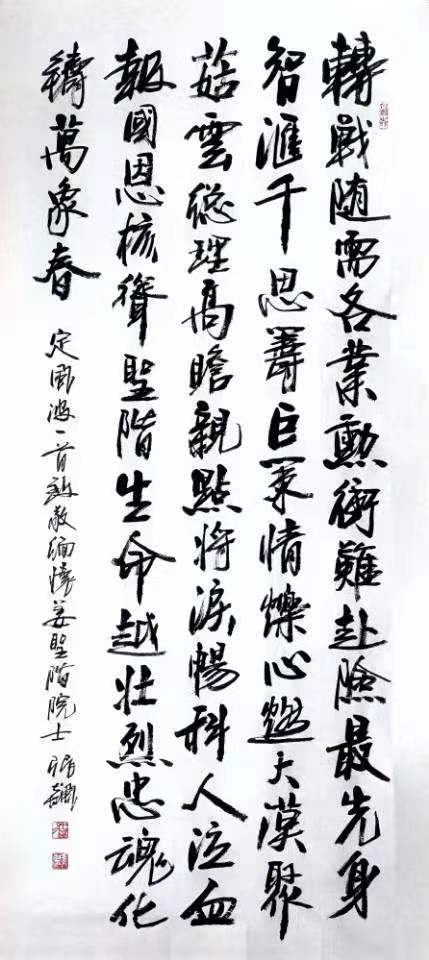 轉戰随需各業勲衝難赴險最先身
智滙千思籌巨策情爍心大漠聚
菇雲総理高瞻親點将淚暢科人泣血
報國恩核聳聖階生命越壯烈忠魂化
鑄萬象春
定風波一首致敬緬懷姜聖階院士